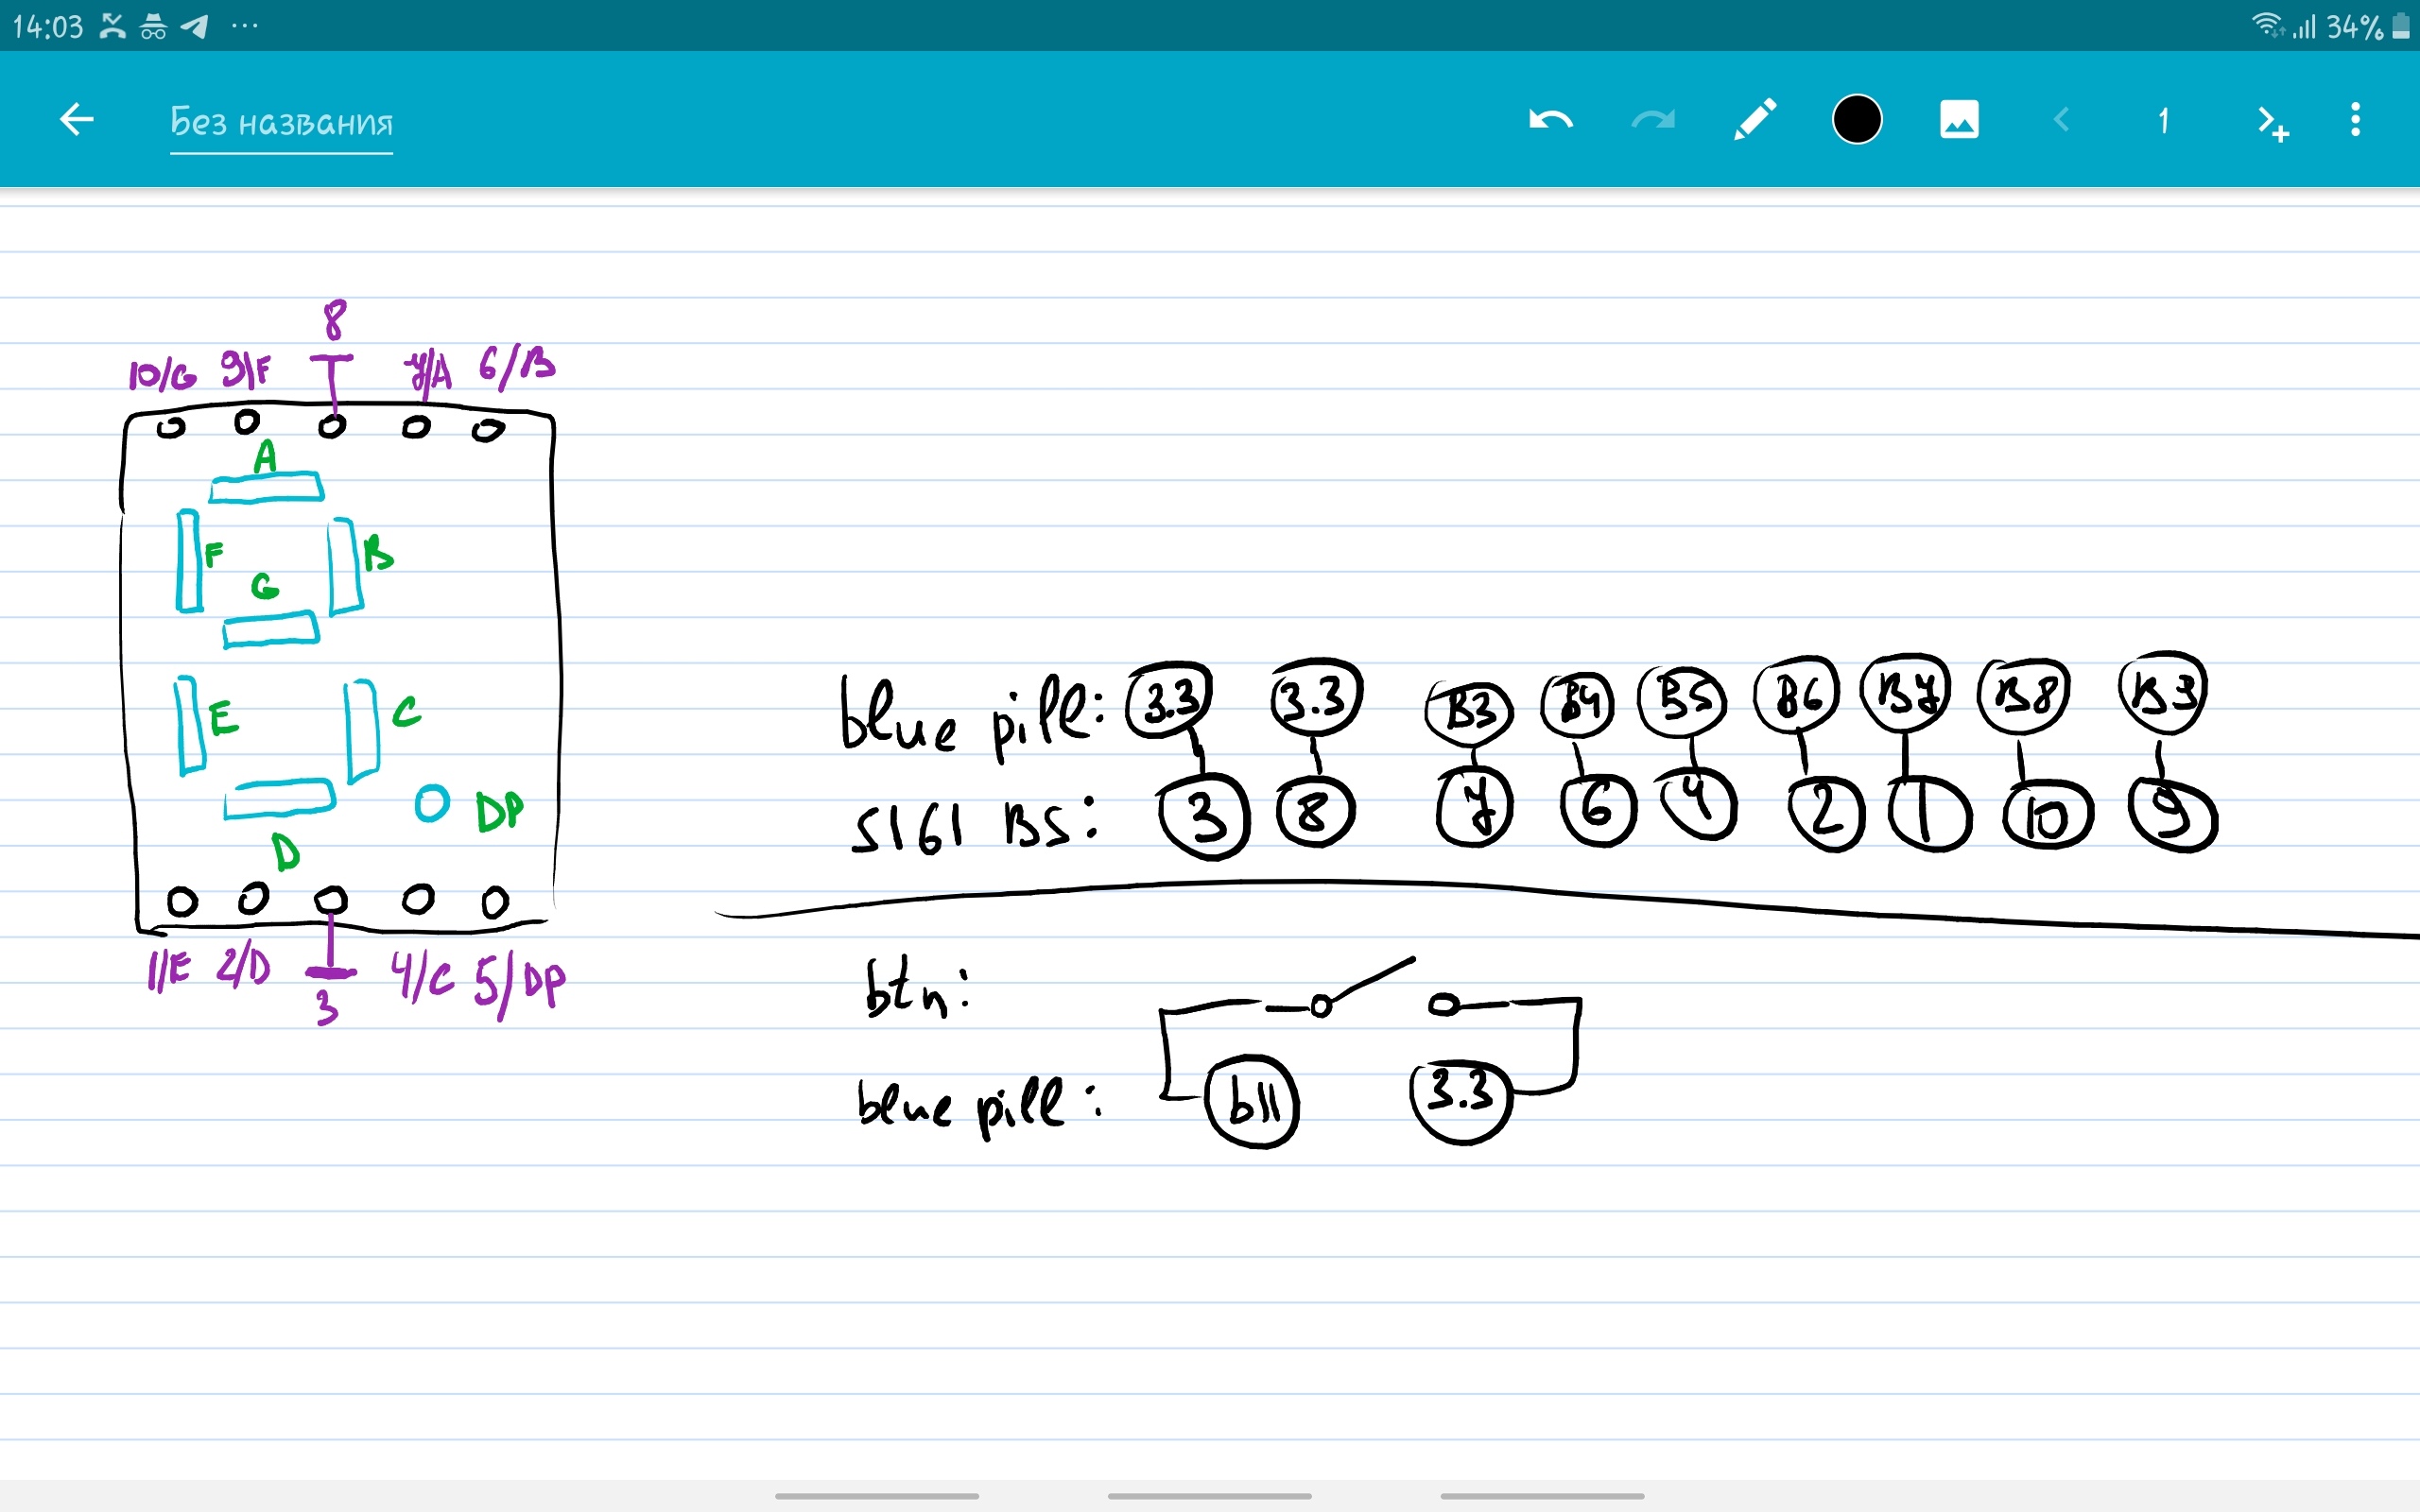 14:03 ... 34%
Без названия 1
8
10/G 9/F 7/A 6/B
A
F B
G
E C
DP
D
1/E 2/D 4/C 5/DP
3
blue pill: 3.3 3.3 B3 B4 B5 B6 B7 B8 B9
5161 BS: 3 8 7 6 4 2 1 10 9
btn:
blue pill: b11 3.3